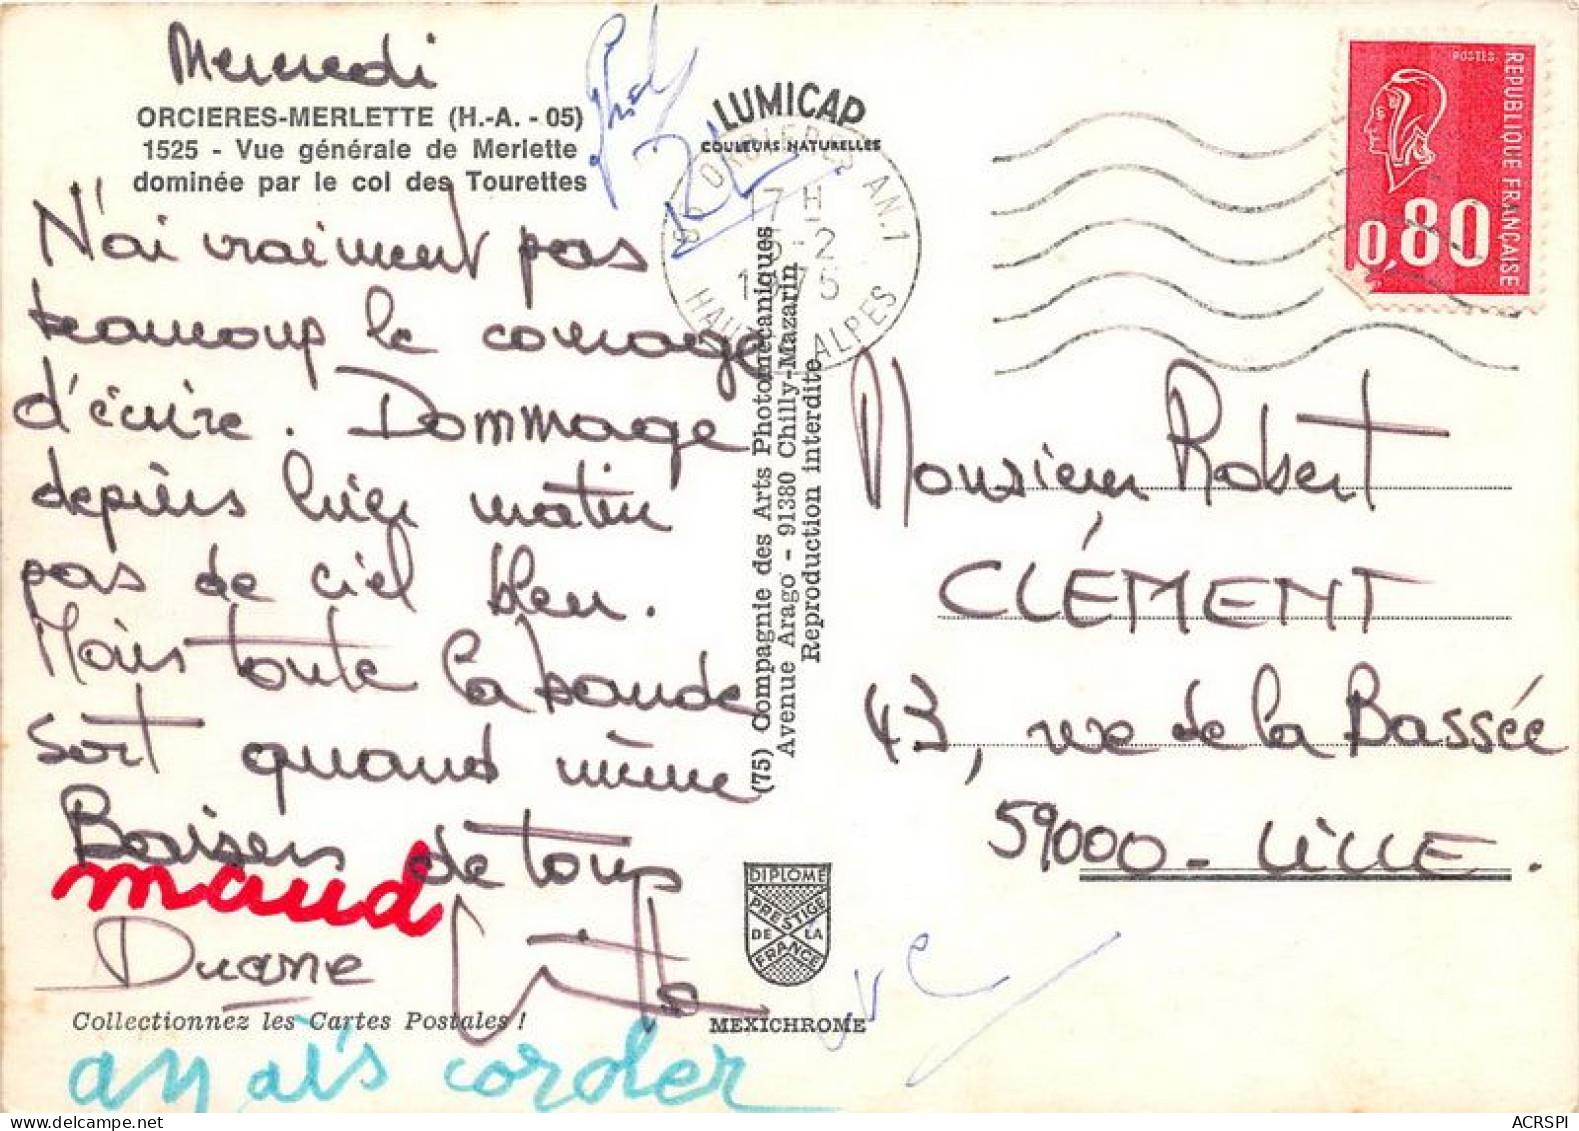 Mercredi
ORCIERES-MERLETTE (H.-A. - 05)
1525 - Vue générale de Merlette
dominée par le col des Tourettes
N'ai vraiment pas
beaucoup le courage
d'écrire. Dommage
depuis hier matin
pas de ciel bleu.
Mais toute la bande
sort quand même
Baisers de tous
maud
Duane
Collectionnez les Cartes Postales !
anaïs corder
LUMICAP
COULEURS NATURELLES
05 ORCIERES AN.1
17 H
5-2
1975
HAUTES ALPES
(75) Compagnie des Arts Photomécaniques
Avenue Arago - 91380 Chilly-Mazarin
Reproduction interdite
DIPLOME
PRESTIGE
DE LA
FRANCE
MEXICHROME
POSTES
REPUBLIQUE FRANÇAISE
0,80
Monsieur Robert
CLÉMENT
43, rue de la Bassée
59000 - LILLE.
ACRSPI